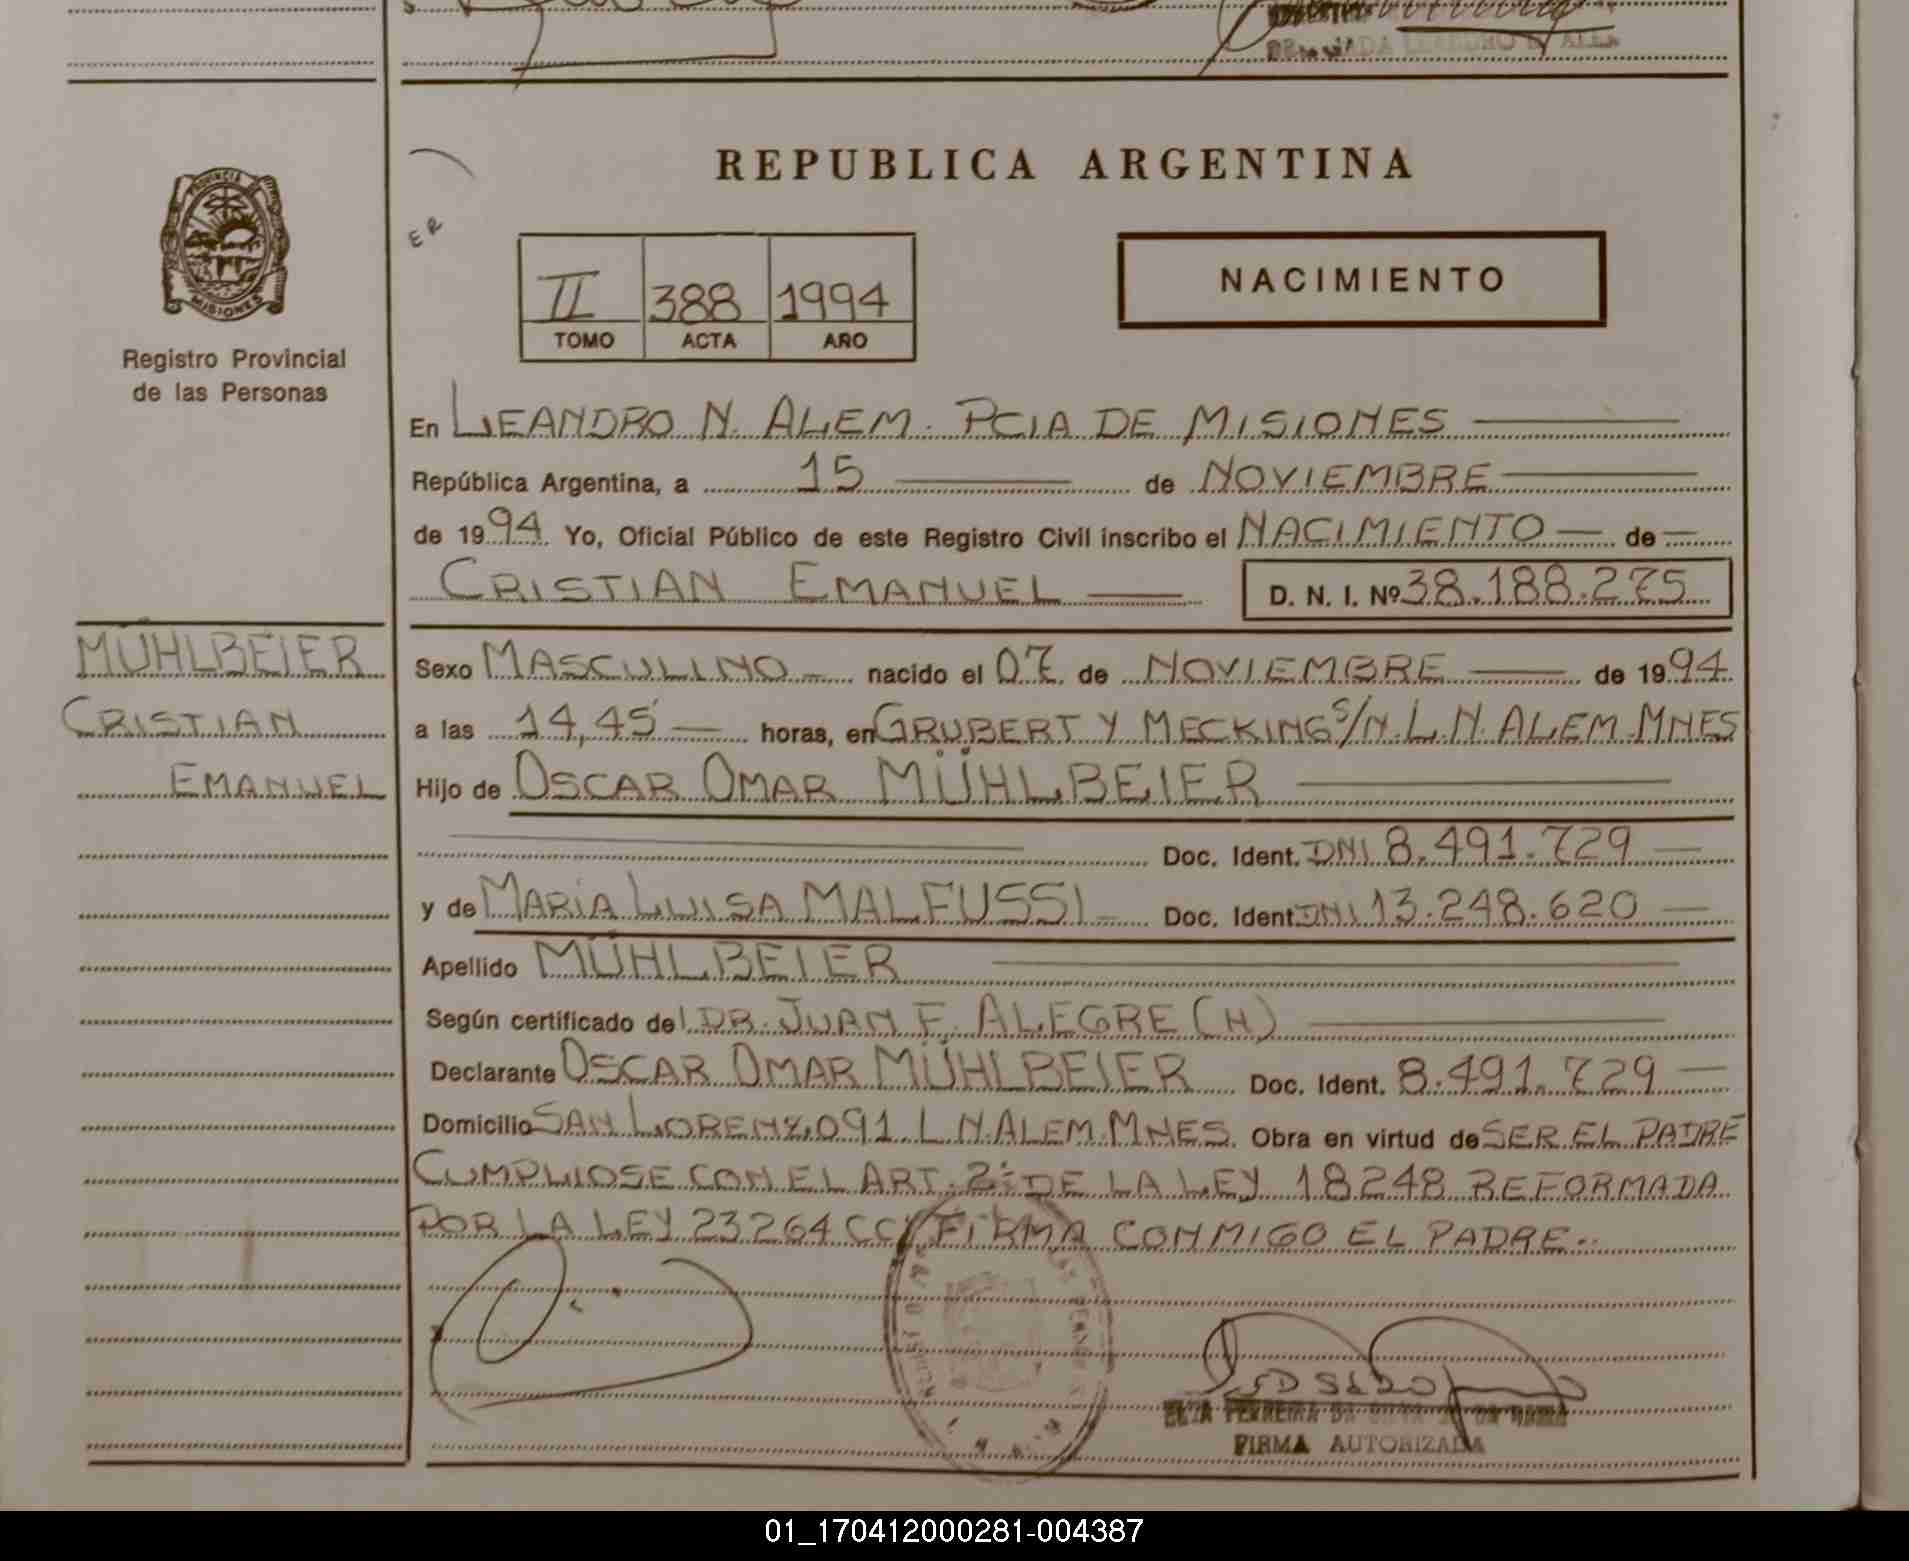 PROVINCIA DE
MISIONES
Registro Provincial
de las Personas
REPUBLICA ARGENTINA
ER
II 388 1994
TOMO ACTA AÑO
NACIMIENTO
En LEANDRO N. ALEM. PCIA DE MISIONES
República Argentina, a 15 de NOVIEMBRE
de 1994. Yo, Oficial Público de este Registro Civil inscribo el NACIMIENTO de
CRISTIAN EMANUEL D. N. I. Nº 38.188.275
MÜHLBEIER
CRISTIAN
EMANUEL
Sexo MASCULINO nacido el 07 de NOVIEMBRE de 1994
a las 14,45 horas, en GRUBERT Y MECKING S/N. L.N. ALEM. MNES
Hijo de OSCAR OMAR MÜHLBEIER
Doc. Ident. DNI 8.491.729
y de MARÍA LUISA MALFUSSI Doc. Ident. DNI 13.248.620
Apellido MÜHLBEIER
Según certificado del DR. JUAN F. ALEGRE (H)
Declarante OSCAR OMAR MÜHLBEIER Doc. Ident. 8.491.729
Domicilio SAN LORENZO 91 L N. ALEM. MNES. Obra en virtud de SER EL PADRE
CUMPLIOSE CON EL ART. 2º DE LA LEY 18248 REFORMADA
POR LA LEY 23264 CC/ FIRMA CONMIGO EL PADRE..
FIRMA AUTORIZADA
01_170412000281-004387